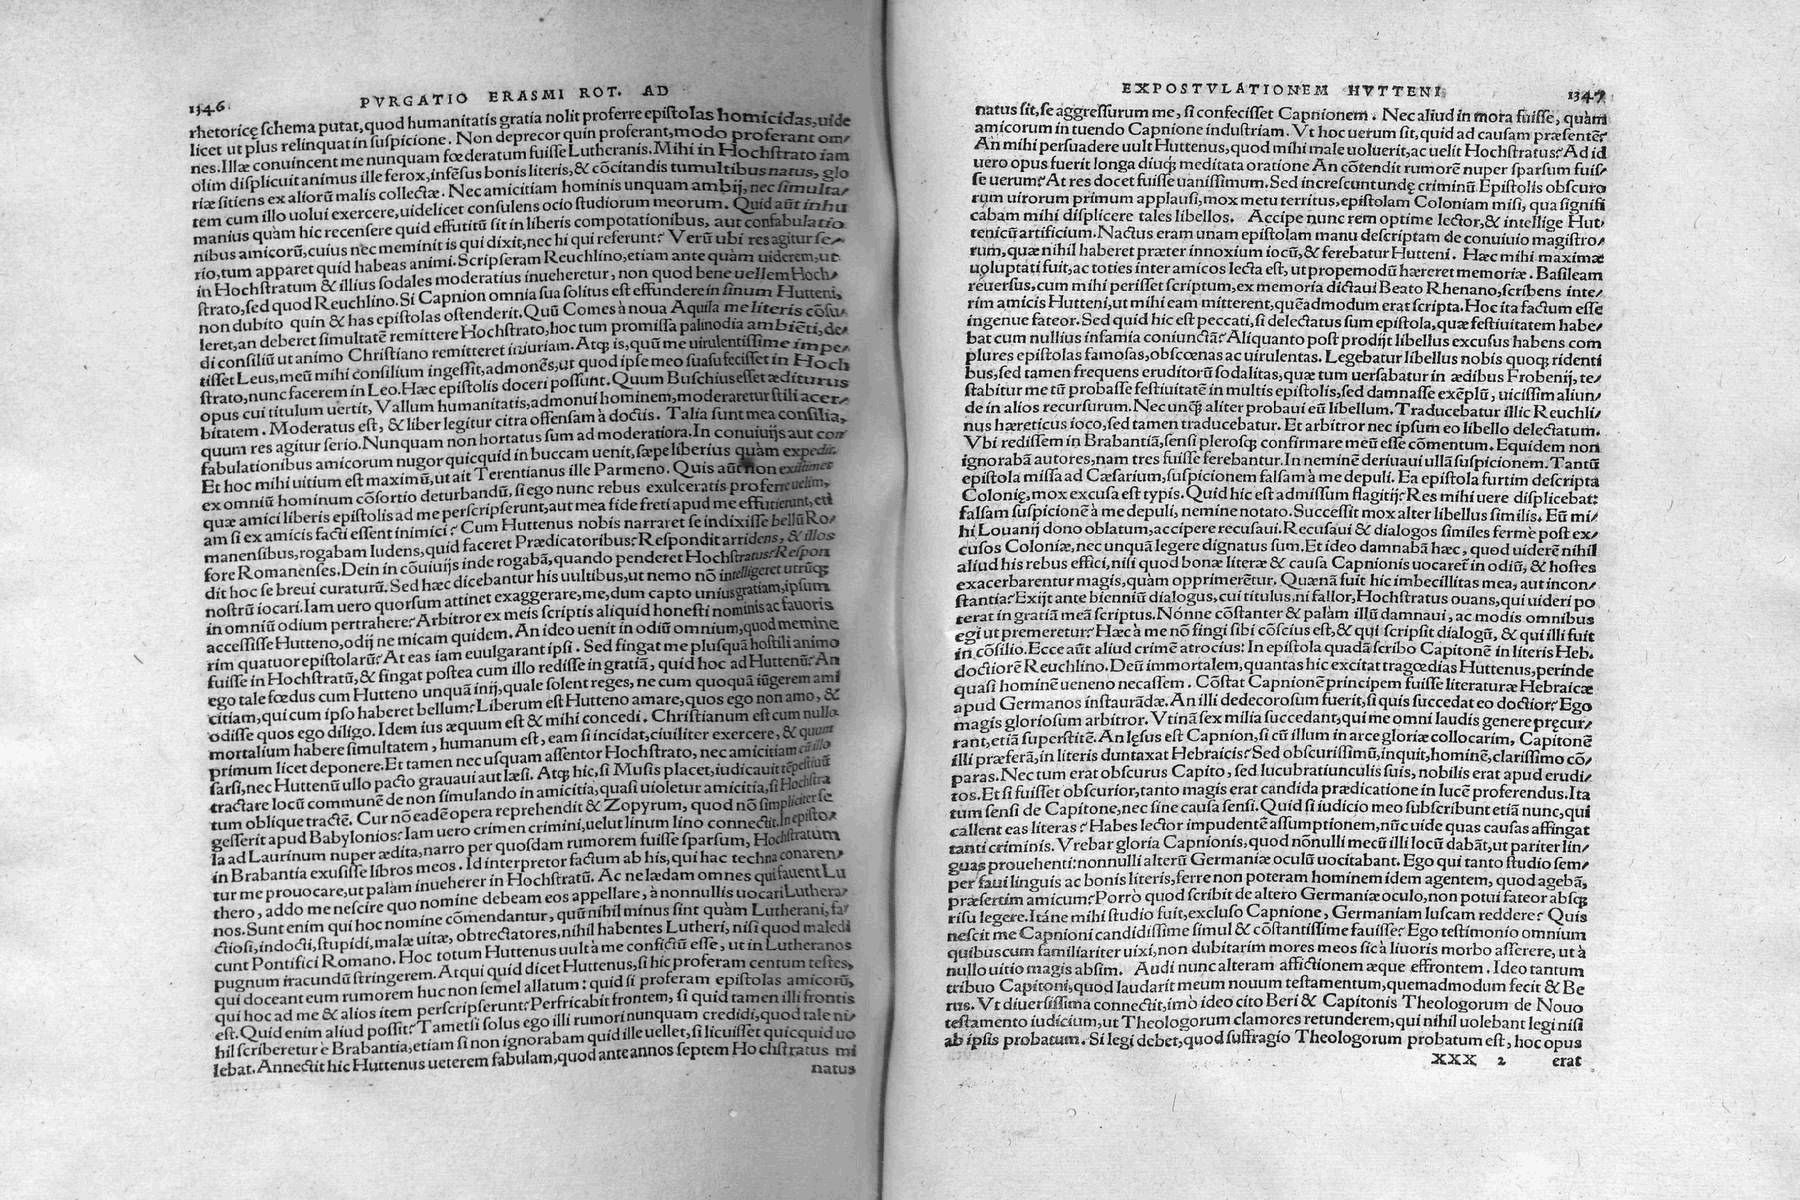 1346 PVRGATIO ERASMI ROT. AD
rhetoricę schema putat, quod humanitatis gratia nolit proferre epistolas homicidas, uide
licet ut plus relinquat in suspicione. Non deprecor quin proferant, modo proferant om/
nes. Illæ conuincent me nunquam fœderatum fuisse Lutheranis. Mihi in Hochstrato iam
olim displicuit animus ille ferox, infẽsus bonis literis, & cõcitandis tumultibus natus, glo
riæ sitiens ex aliorũ malis collectæ. Nec amicitiam hominis unquam ambij, nec simulta/
tem cum illo uolui exercere, uidelicet consulens ocio studiorum meorum. Quid aũt inhu
manius quàm hic recensere quid effutitũ sit in liberis compotationibus, aut confabulatio
nibus amicorũ, cuius nec meminit is qui dixit, nec hi qui referunt? Verũ ubi res agitur se/
rio, tum apparet quid habeas animi. Scripseram Reuchlino, etiam ante quàm uiderem, ut
in Hochstratum & illius sodales moderatius inueheretur, non quod bene uellem Hoch/
strato, sed quod Reuchlino. Si Capnion omnia sua solitus est effundere in sinum Hutteni,
non dubito quin & has epistolas ostenderit. Quũ Comes à noua Aquila me literis cõsu/
leret, an deberet simultatẽ remittere Hochstrato, hoc tum promissa palinodia ambiẽti, de/
di consiliũ ut animo Christiano remitteret iniuriam. Atq; is, quũ me uirulentissime impe/
tisset Leus, meũ mihi consilium ingessit, admonẽs, ut quod ipse meo suasu fecisset in Hoch
strato, nunc facerem in Leo. Hæc epistolis doceri possunt. Quum Buschius esset æditurus
opus cui titulum uertit, Vallum humanitatis, admonui hominem, moderaretur stili acer/
bitatem. Moderatus est, & liber legitur citra offensam à doctis. Talia sunt mea consilia,
quum res agitur serio. Nunquam non hortatus sum ad moderatiora. In conuiuijs aut con
fabulationibus amicorum nugor quicquid in buccam uenit, sæpe liberius quàm expedit.
Et hoc mihi uitium est maximũ, ut ait Terentianus ille Parmeno. Quis aũt non existimet
ex omniũ hominum cõsortio deturbandũ, si ego nunc rebus exulceratis proferre uelim,
quæ amici liberis epistolis ad me perscripserunt, aut mea fide freti apud me effutierunt, eti
am si ex amicis facti essent inimici? Cum Huttenus nobis narraret se indixisse bellũ Ro/
manensibus, rogabam ludens, quid faceret Prædicatoribus? Respondit arridens, & illos
fore Romanenses. Dein in cõuiuijs inde rogabã, quando penderet Hochstratus? Respon
dit hoc se breui curaturũ. Sed hæc dicebantur his uultibus, ut nemo nõ intelligeret utrũq;
nostrũ iocari. Iam uero quorsum attinet exaggerare, me, dum capto unius gratiam, ipsum
in omniũ odium pertrahere? Arbitror ex meis scriptis aliquid honesti nominis ac fauoris
accessisse Hutteno, odij ne micam quidem. An ideo uenit in odiũ omnium, quod memine
rim quatuor epistolarũ? At eas iam euulgarant ipsi. Sed fingat me plusquã hostili animo
fuisse in Hochstratũ, & fingat postea cum illo redisse in gratiã, quid hoc ad Huttenũ? An
ego tale fœdus cum Hutteno unquã inij, quale solent reges, ne cum quoquã iũgerem ami
citiam, qui cum ipso haberet bellum? Liberum est Hutteno amare, quos ego non amo, &
odisse quos ego diligo. Idem ius æquum est & mihi concedi. Christianum est cum nullo
mortalium habere simultatem, humanum est, eam si incidat, ciuiliter exercere, & quum
primum licet deponere. Et tamen nec usquam assentor Hochstrato, nec amicitiam cũ illo
sarsi, nec Huttenũ ullo pacto grauaui aut læsi. Atq; hic, si Musis placet, iudicauit tẽpestiuũ
tractare locũ communẽ de non simulando in amicitia, quasi uioletur amicitia, si Hochstra
tum oblique tractẽ. Cur nõ eadẽ opera reprehendit & Zopyrum, quod nõ simpliciter se
gesserit apud Babylonios? Iam uero crimen crimini, uelut linum lino connectit. In episto/
la ad Laurinum nuper ædita, narro per quosdam rumorem fuisse sparsum, Hochstratum
in Brabantia exusisse libros meos. Id interpretor factum ab his, qui hac techna conaren/
tur me prouocare, ut palàm inueherer in Hochstratũ. Ac ne lædam omnes qui fauent Lu
thero, addo me nescire quo nomine debeam eos appellare, à nonnullis uocari Luthera/
nos. Sunt enim qui hoc nomine cõmendantur, quũ nihil minus sint quàm Lutherani, fa/
ctiosi, indocti, stupidi, malæ uitæ, obtrectatores, nihil habentes Lutheri, nisi quod maledi
cunt Pontifici Romano. Hoc totum Huttenus uult à me confictũ esse, ut in Lutheranos
pugnum iracundũ stringerem. Atqui quid dicet Huttenus, si hic proferam centum testes,
qui doceant eum rumorem huc non semel allatum: quid si proferam epistolas amicorũ,
qui hoc ad me & alios item perscripserunt? Perfricabit frontem, si quid tamen illi frontis
est. Quid enim aliud possit? Tametsi solus ego illi rumori nunquam credidi, quod tale ni/
hil scriberetur e Brabantia, etiam si non ignorabam quid ille uellet, si licuisset quicquid uo
lebat. Annectit hic Huttenus ueterem fabulam, quod ante annos septem Hochstratus mi
natus
EXPOSTVLATIONEM HVTTENI 1347
natus sit, se aggressurum me, si confecisset Capnionem. Nec aliud in mora fuisse, quàm
amicorum in tuendo Capnione industriam. Vt hoc uerum sit, quid ad causam præsentẽ?
An mihi persuadere uult Huttenus, quod mihi male uoluerit, ac uelit Hochstratus? Ad id
uero opus fuerit longa diuq; meditata oratione An cõtendit rumorẽ nuper sparsum fuis/
se uerum? At res docet fuisse uanissimum. Sed increscunt undę criminũ. Epistolis obscuro
rum uirorum primum applausi, mox metu territus, epistolam Coloniam misi, qua signifi
cabam mihi displicere tales libellos. Accipe nunc rem optime lector, & intellige Hut/
tenicũ artificium. Nactus eram unam epistolam manu descriptam de conuiuio magistro/
rum, quæ nihil haberet præter innoxium iocũ, & ferebatur Hutteni. Hæc mihi maximæ
uoluptati fuit, ac toties inter amicos lecta est, ut propemodũ hæreret memoriæ. Basileam
reuersus, cum mihi perisset scriptum, ex memoria dictaui Beato Rhenano, scribens inte/
rim amicis Hutteni, ut mihi eam mitterent, quẽadmodum erat scripta. Hoc ita factum esse
ingenue fateor. Sed quid hic est peccati, si delectatus sum epistola, quæ festiuitatem habe/
bat cum nullius infamia coniunctã? Aliquanto post prodijt libellus excusus habens com
plures epistolas famosas, obscœnas ac uirulentas. Legebatur libellus nobis quoq; ridenti
bus, sed tamen frequens eruditorũ sodalitas, quæ tum uersabatur in ædibus Frobenij, te/
stabitur me tũ probasse festiuitatẽ in multis epistolis, sed damnasse exẽplũ, uicissim aliun/
de in alios recursurum. Nec unq̃ aliter probaui eũ libellum. Traducebatur illic Reuchli/
nus hæreticus ioco, sed tamen traducebatur. Et arbitror nec ipsum eo libello delectatum.
Vbi redissem in Brabantiã, sensi plerosq; confirmare meũ esse cõmentum. Equidem non
ignorabã autores, nam tres fuisse ferebantur. In neminẽ deriuaui ullã suspicionem. Tantũ
epistola missa ad Cæsarium, suspicionem falsam à me depuli. Ea epistola furtim descripta
Colonię, mox excusa est typis. Quid hic est admissum flagitij? Res mihi uere displicebat:
falsam suspicionẽ à me depuli, nemine notato. Successit mox alter libellus similis. Eũ mi/
hi Louanij dono oblatum, accipere recusaui. Recusaui & dialogos similes ferme post ex/
cusos Coloniæ, nec unquã legere dignatus sum. Et ideo damnabã hæc, quod uiderẽ nihil
aliud his rebus effici, nisi quod bonæ literæ & causa Capnionis uocaret̃ in odiũ, & hostes
exacerbarentur magis, quàm opprimerẽtur. Quænã fuit hic imbecillitas mea, aut incon/
stantia? Exijt ante bienniũ dialogus, cui titulus, ni fallor, Hochstratus ouans, qui uideri po
terat in gratiã meã scriptus. Nónne cõstanter & palàm illũ damnaui, ac modis omnibus
egi ut premeretur? Hæc à me nõ fingi sibi cõscius est, & qui scripsit dialogũ, & qui illi fuit
in cõsilio. Ecce aũt aliud crimẽ atrocius: In epistola quadã scribo Capitonẽ in literis Heb.
doctiorẽ Reuchlino. Deũ immortalem, quantas hic excitat tragœdias Huttenus, perinde
quasi hominẽ ueneno necassem. Cõstat Capnionẽ principem fuisse literaturæ Hebraicæ
apud Germanos instaurãdæ. An illi dedecorosum fuerit, si quis succedat eo doctior? Ego
magis gloriosum arbitror. Vtinã sex milia succedant, qui me omni laudis genere pręcur/
rant, etiã superstitẽ. An lęsus est Capnion, si cũ illum in arce gloriæ collocarim, Capitonẽ
illi præferã, in literis duntaxat Hebraicis? Sed obscurissimũ, inquit, hominẽ, clarissimo cõ/
paras. Nec tum erat obscurus Capito, sed lucubratiunculis suis, nobilis erat apud erudi/
tos. Et si fuisset obscurior, tanto magis erat candida prædicatione in lucẽ proferendus. Ita
tum sensi de Capitone, nec sine causa sensi. Quid si iudicio meo subscribunt etiã nunc, qui
callent eas literas? Habes lector impudentẽ assumptionem, nũc uide quas causas affingat
tanti criminis. Vrebar gloria Capnionis, quod nõnulli mecũ illi locũ dabãt, ut pariter lin/
guas prouehenti: nonnulli alterũ Germaniæ oculũ uocitabant. Ego qui tanto studio sem/
per faui linguis ac bonis literis, ferre non poteram hominem idem agentem, quod agebã,
præsertim amicum? Porrò quod scribit de altero Germaniæ oculo, non potui fateor absq;
risu legere. Itáne mihi studio fuit, excluso Capnione, Germaniam luscam reddere? Quis
nescit me Capnioni candidissime simul & cõstantissime fauisse? Ego testimonio omnium
quibuscum familiariter uixi, non dubitarim mores meos sic à liuoris morbo asserere, ut à
nullo uitio magis absim. Audi nunc alteram affictionem æque effrontem. Ideo tantum
tribuo Capitoni, quod laudarit meum nouum testamentum, quemadmodum fecit & Be
rus. Vt diuersissima connectit, imò ideo cito Beri & Capitonis Theologorum de Nouo
testamento iudicium, ut Theologorum clamores retunderem, qui nihil uolebant legi nisi
ab ipsis probatum. Si legi debet, quod suffragio Theologorum probatum est, hoc opus
XXX 2 erat